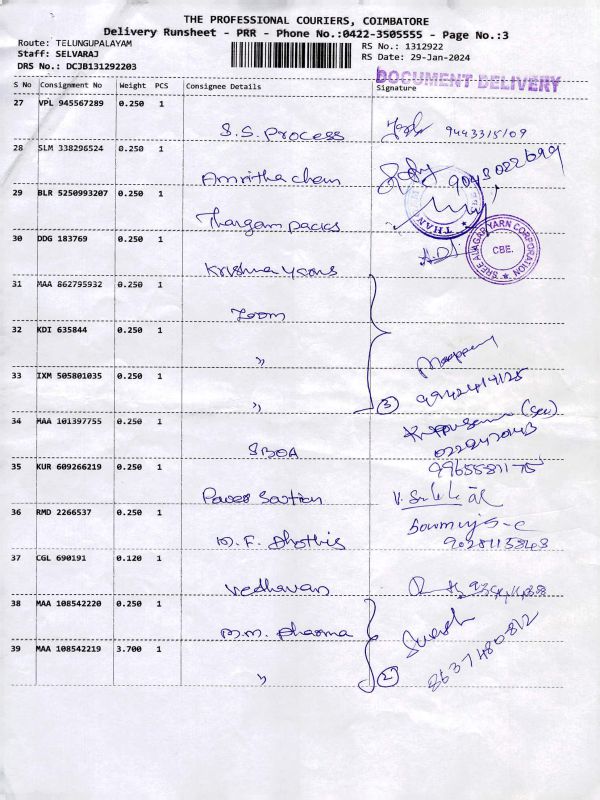 THE PROFESSIONAL COURIERS, COIMBATORE
Delivery Runsheet - PRR - Phone No.:0422-3505555 - Page No.:3
Route: TELUNGUPALAYAM
Staff: SELVARAJ
DRS No.: DCJB131292203
RS No.: 1312922
RS Date: 29-Jan-2024
DOCUMENT DELIVERY
S No Consignment No Weight PCS Consignee Details Signature
27 VPL 945567289 0.250 1
S.S. Process 9443315109
28 SLM 338296524 0.250 1
Amritha chem 9043022699
29 BLR 5250993207 0.250 1
Thangam packs
THAN
30 DDG 183769 0.250 1
Krishna yarns
SREE AVAGAR YARN CORPORATION
CBE.
31 MAA 862795932 0.250 1
Zoom
32 KDI 635844 0.250 1
"
33 IXM 505801035 0.250 1
" 3
34 MAA 101397755 0.250 1
SBOA
9965581175
35 KUR 609266219 0.250 1
Power Section
36 RMD 2266537 0.250 1
M.F. Dhothis
37 CGL 690191 0.120 1
Vedhavan
38 MAA 108542220 0.250 1
M.M. Pharma
Suresh
8637480812
39 MAA 108542219 3.700 1
" 2